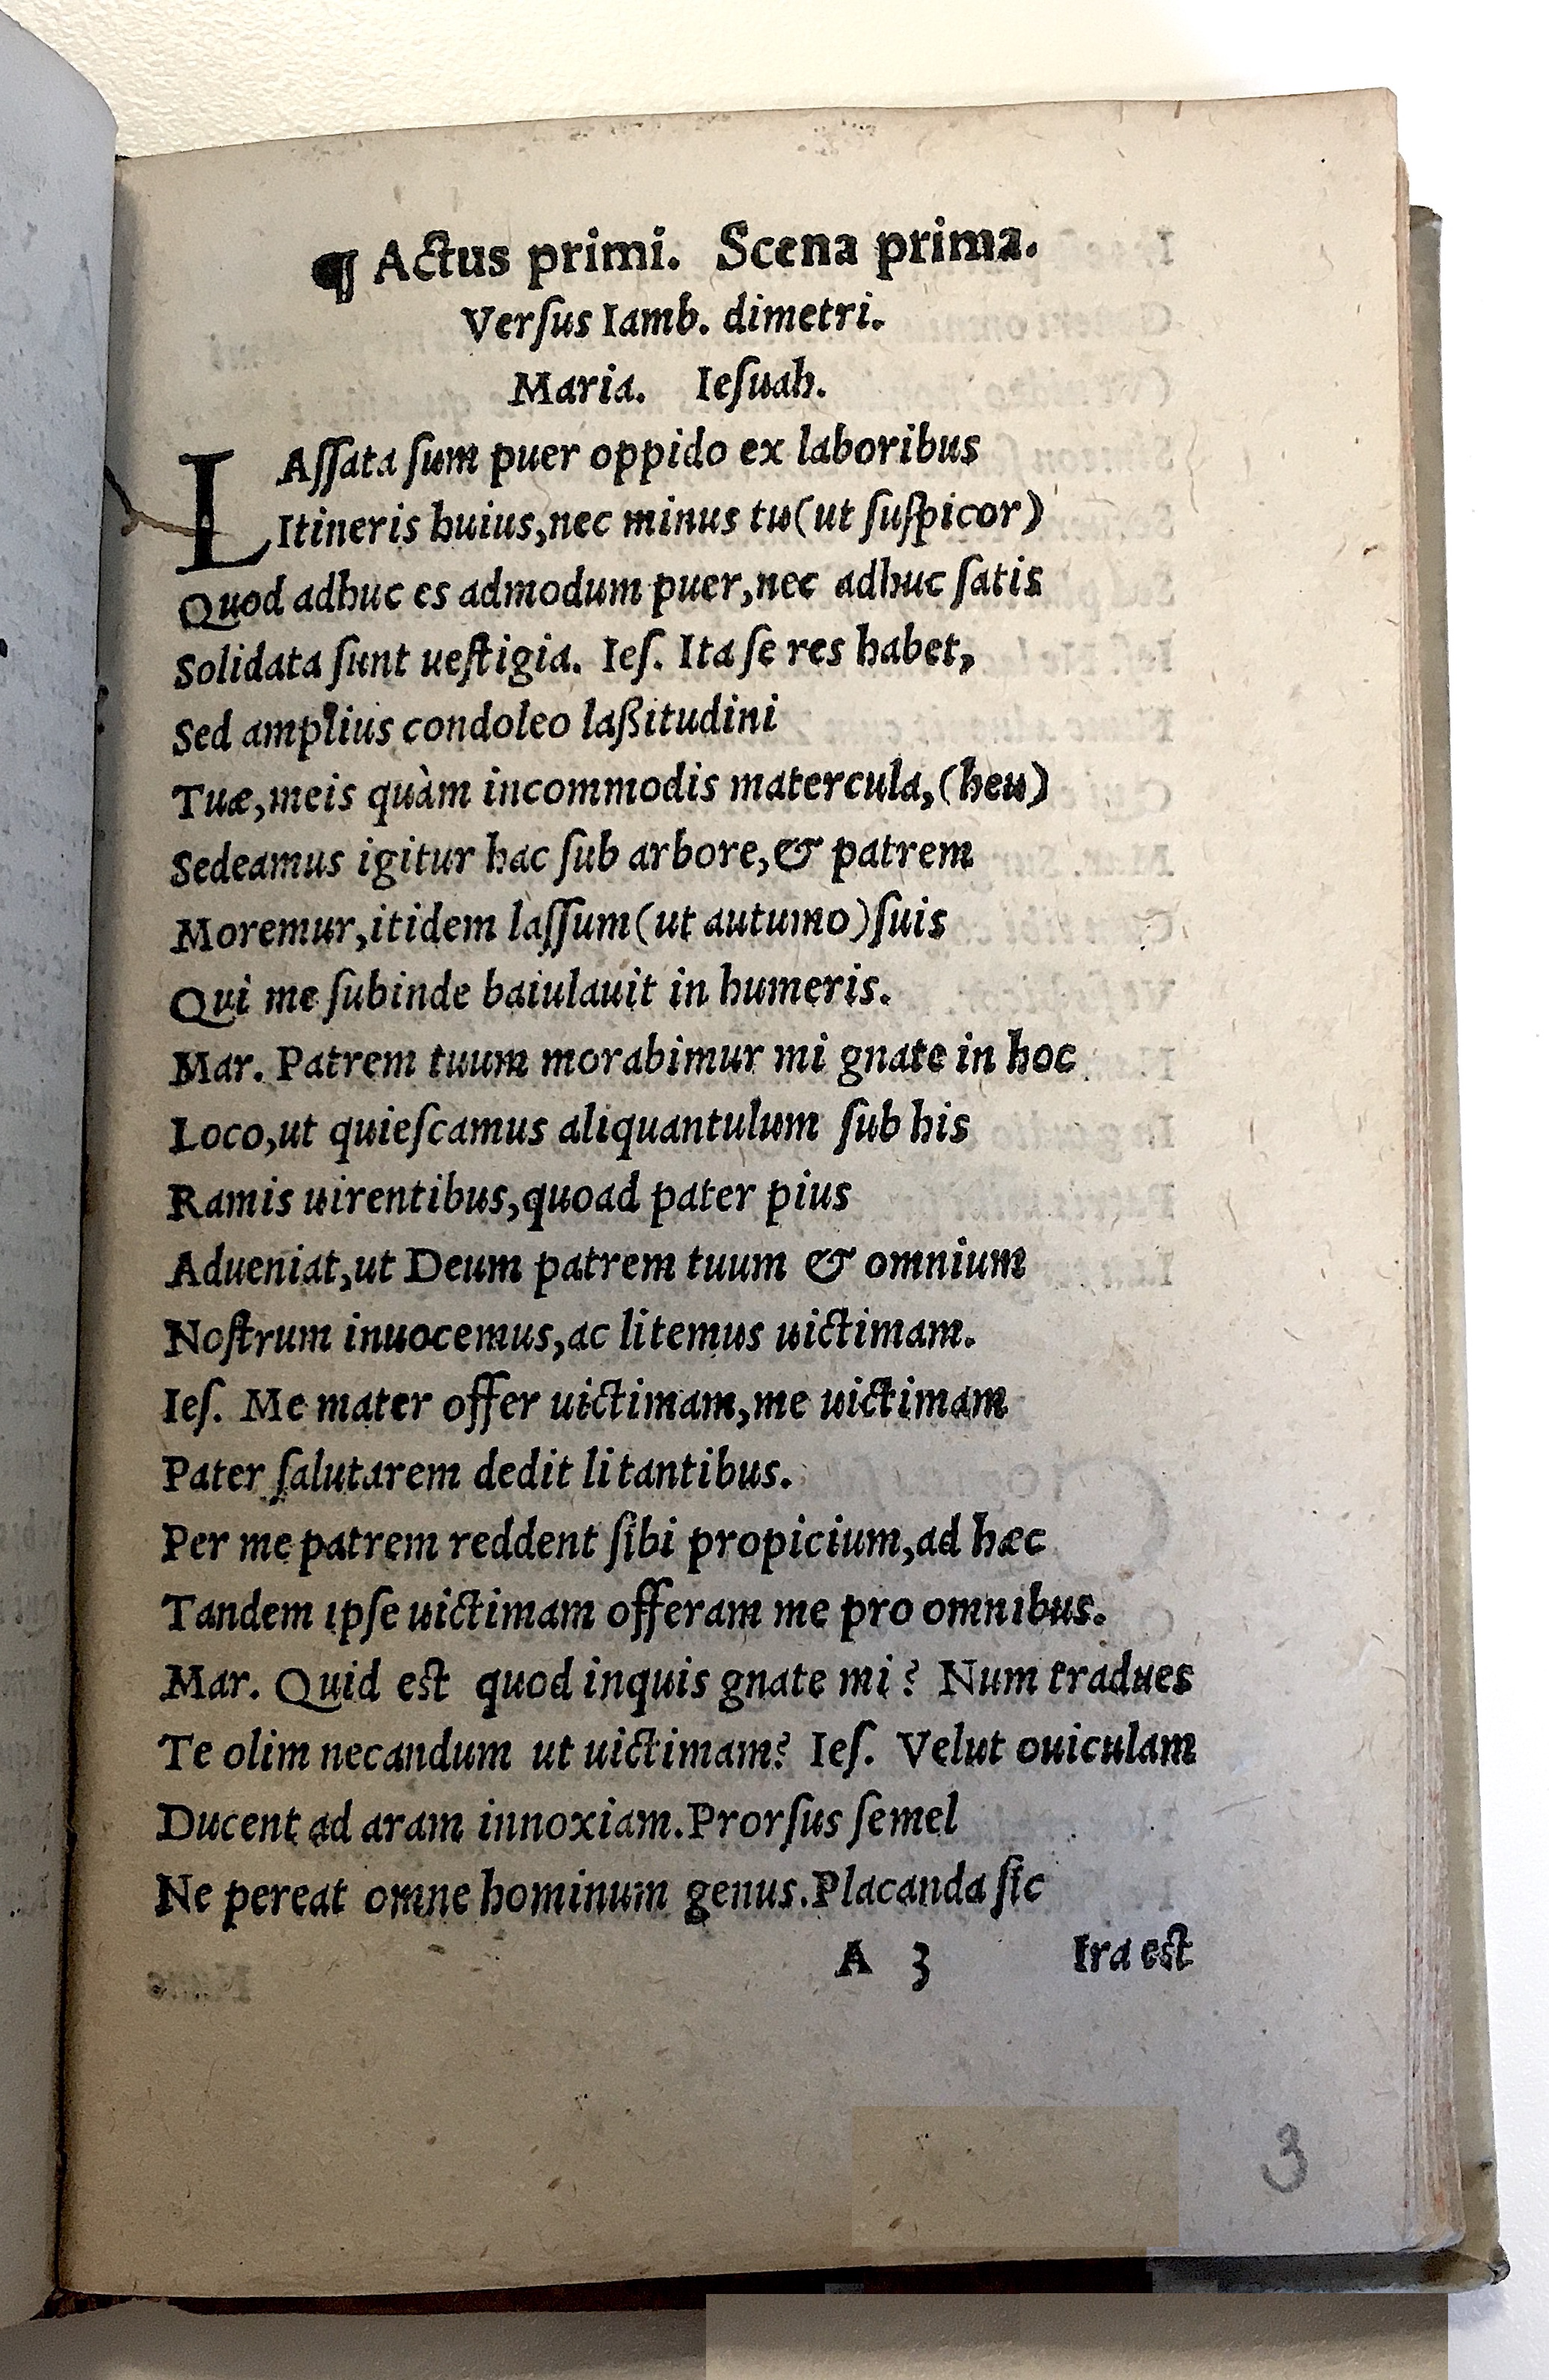 ¶ Actus primi. Scena prima.
Verſus Iamb. dimetri.
Maria. Ieſuah.
LAſſata ſum puer oppido ex laboribus
Itineris huius,nec minus tu(ut ſuſpicor)
Quod adhuc es admodum puer,nec adhuc ſatis
Solidata ſunt ueſtigia. Ieſ. Ita ſe res habet,
Sed amplius condoleo laßitudini
Tuæ,meis quàm incommodis matercula,(heu)
Sedeamus igitur hac ſub arbore,& patrem
Moremur,itidem laſſum(ut autumo)ſuis
Qui me ſubinde baiulauit in humeris.
Mar. Patrem tuum morabimur mi gnate in hoc
Loco,ut quieſcamus aliquantulum ſub his
Ramis uirentibus,quoad pater pius
Adueniat,ut Deum patrem tuum & omnium
Noſtrum inuocemus,ac litemus uictimam.
Ieſ. Me mater offer uictimam,me uictimam
Pater ſalutarem dedit litantibus.
Per me patrem reddent ſibi propicium,ad hæc
Tandem ipſe uictimam offeram me pro omnibus.
Mar. Quid eſt quod inquis gnate mi? Num trades
Te olim necandum ut uictimam? Ieſ. Velut ouiculam
Ducent ad aram innoxiam.Prorſus ſemel
Ne pereat omne hominum genus.Placanda ſic
A 3 Ira eſt
3